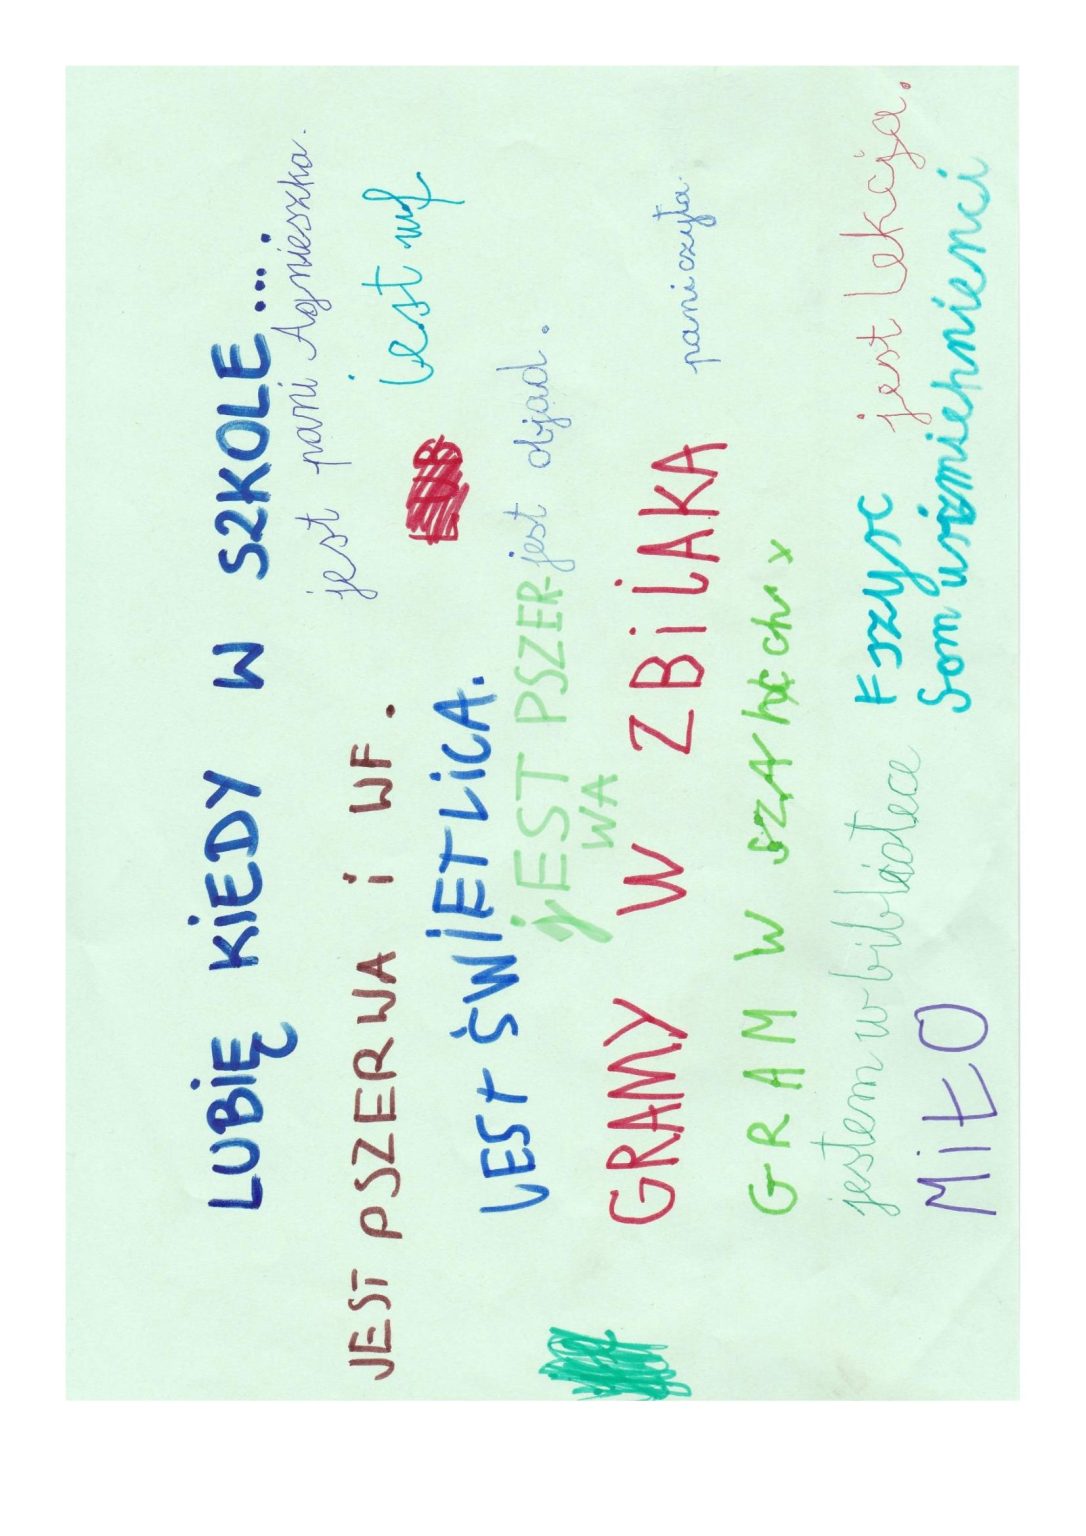 LUBIĘ KIEDY W SZKOLE ....
jest pani Agnieszka.
JEST PSZERWA i WF.
jest wf
LEST ŚWIETLICA.
jEST PSZER-
WA
jest objad.
GRAMY W ZBiLAKA
pani czyta.
GRAM W SZAHACH x
jestem w bibliotece
jest lekcja.
Fszysc
som uśmiehnienci
MiŁO